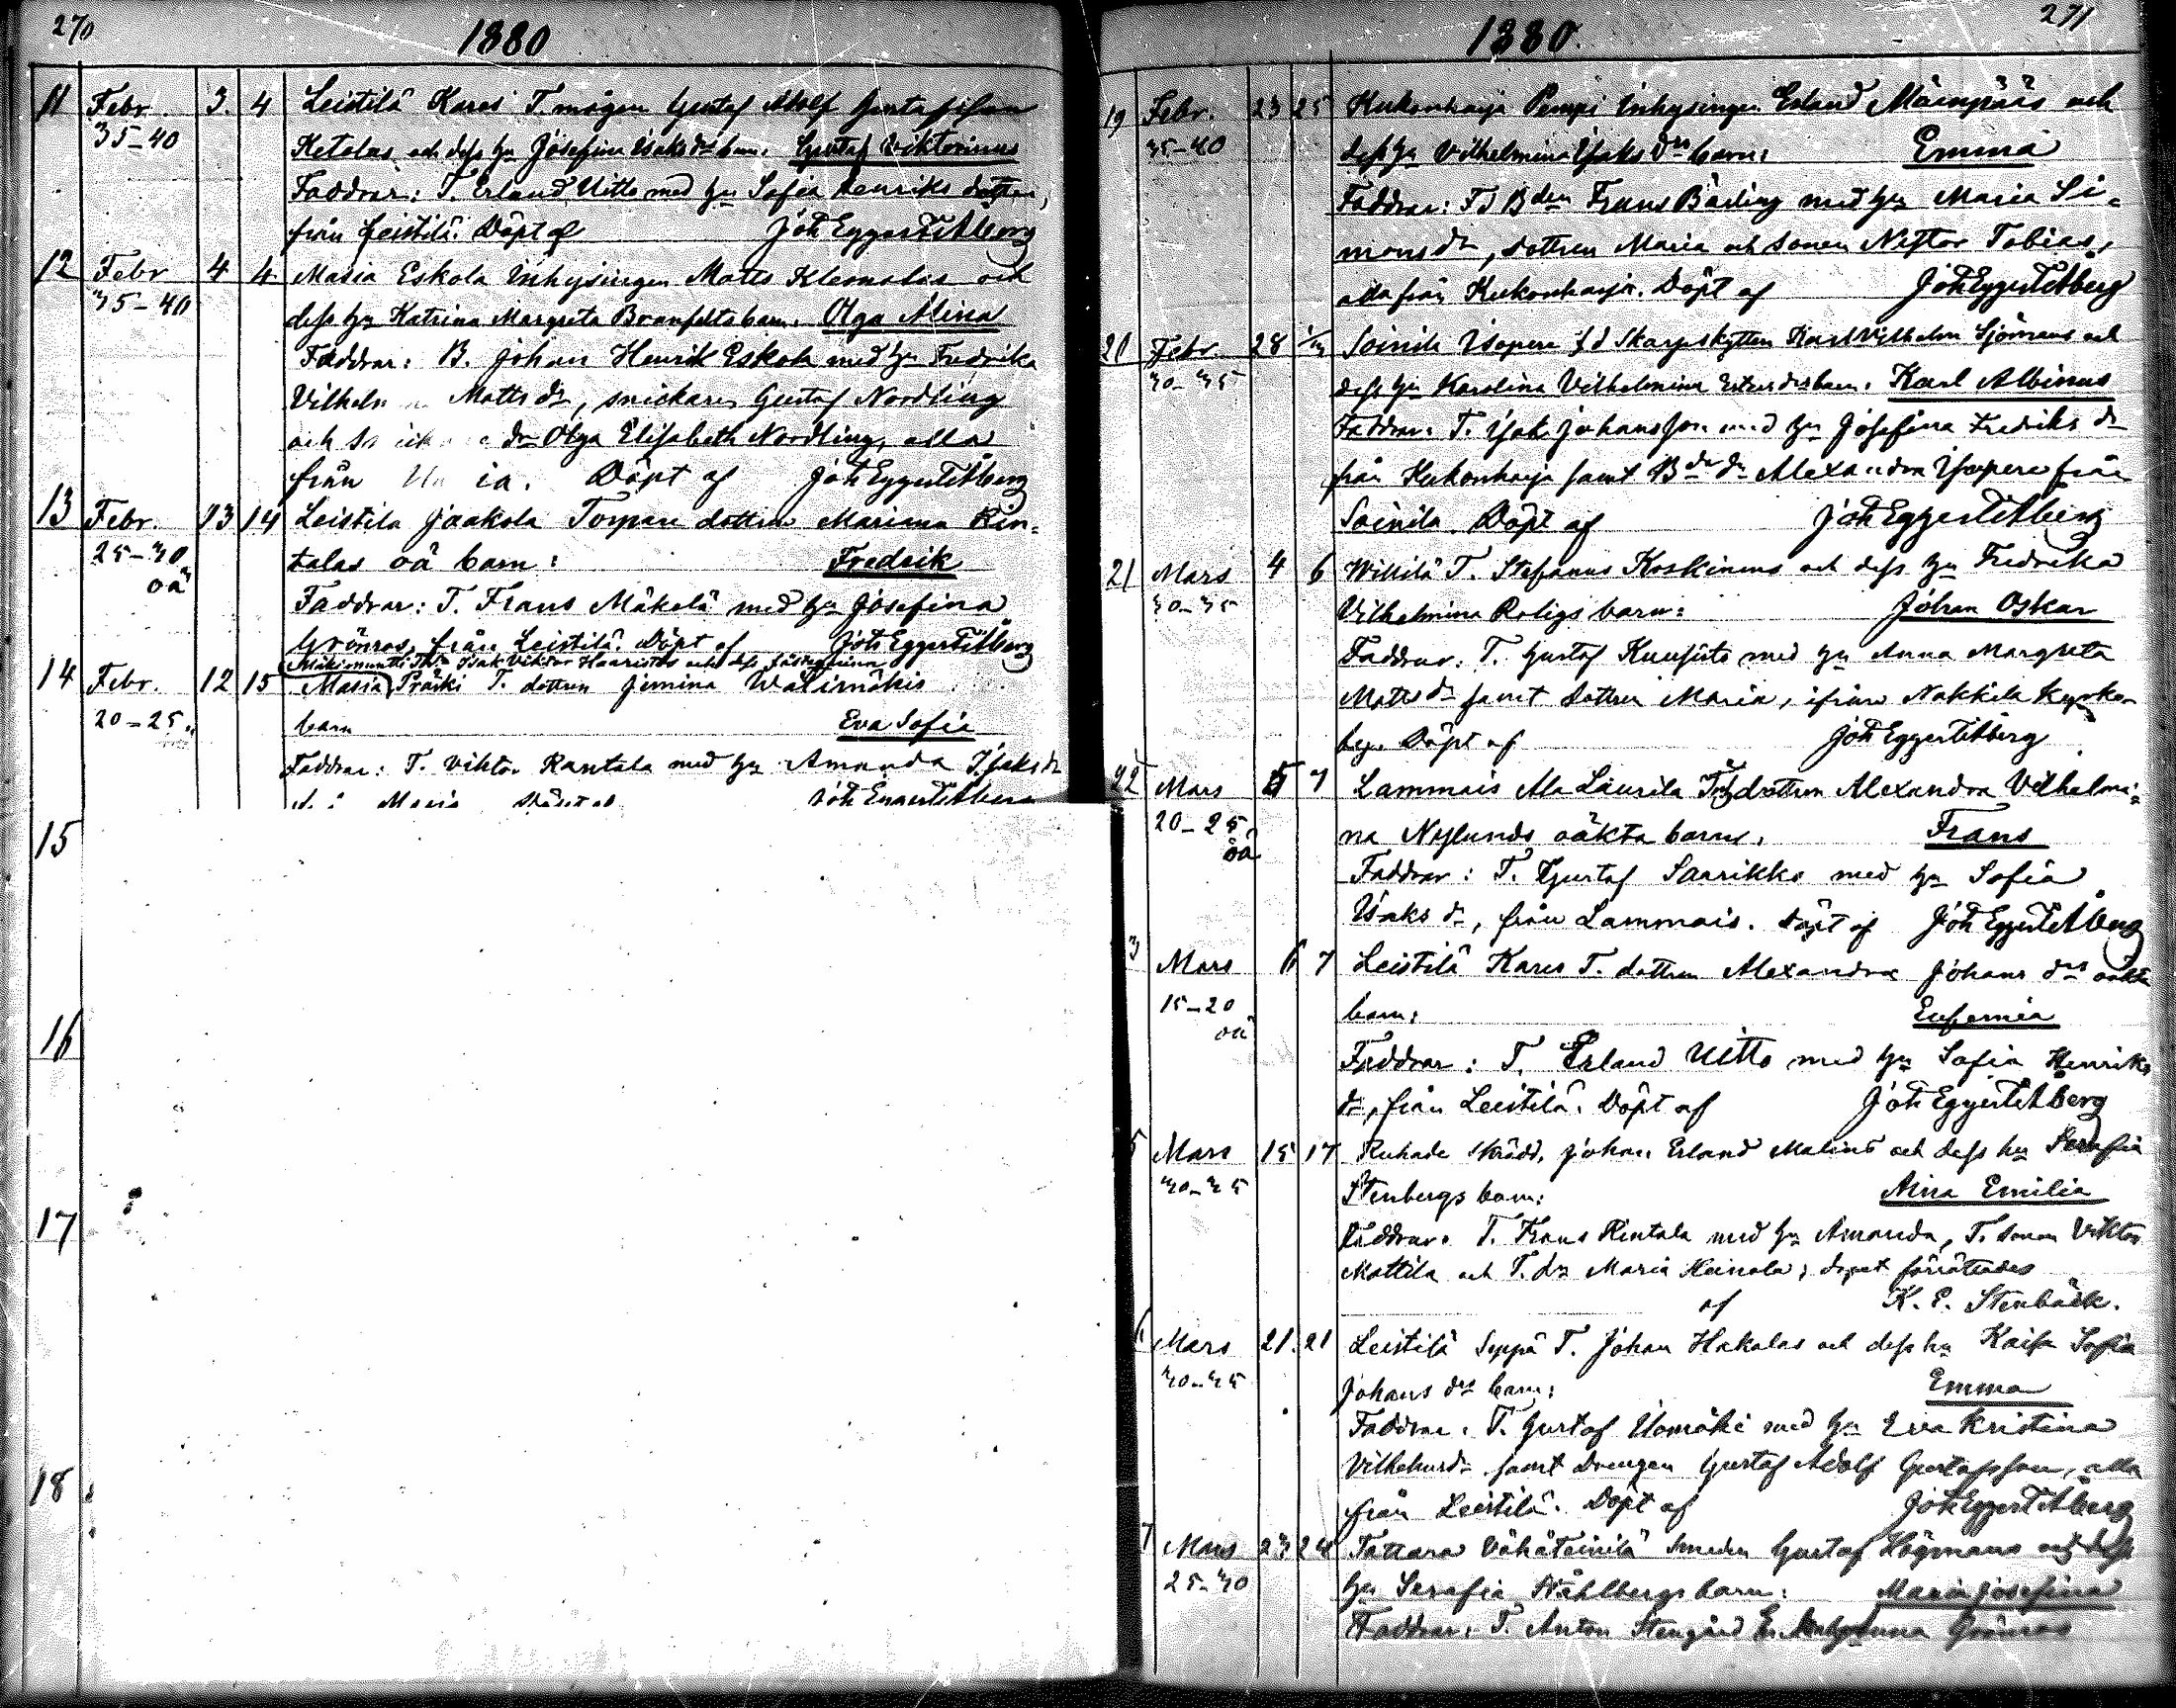 270
1880
11 Febr. 3. 4 Leistilä Kares T. mågen Gustaf Adolf Gustafsson
35-40 Ketolas och dess hu Josefina Isaks dr barn. Gustaf Viktorinus
Faddrar: T. Erland Uitto med hu Sofia Henriks dotter,
från Leistilä. Döpt af Joh Eggert Åberg
12 Febr 4 4 Masia Eskola Inhysingen Matts Klemolas och
35-40 dess hu Katrina Margreta Branfelts barn. Olga Alina
Faddrar: B. Johan Henrik Eskola med hu Fredrika
Vilhelm Matts dr, snickaren Gustaf Nordling
och dr Olga Elisabeth Nordling, alla
från Döpt af Joh Eggert Åberg
13 Febr. 13 14 Leistila Jaakola Torpare dottren Mariana Rin-
25-30 talas oä barn: Fredrik
oä
Faddrar: T. Frans Mäkelä med hu Josefina
Grönros, från Leistilä. Döpt af Joh Eggert Åberg
Isak Viktor Haaristos och dess
14 Febr. 12 15 Masia Präiki T. dottren Jemina Wälimäkis
20-25 barn Eva Sofia
Faddrar: T. Viktor Rantala med hu Amanda Isaks dr
Maria Joh Eggert Åberg
15
16
17
18
271
1880.
19 Febr. 23 25 Kukonharja Pemppi Inhysingen Erland Mäenpääs och
35-40 dess hu Vilhelmina Isaks drs barn: Emma
Faddrar: Fd Bden Frans Bärling med hu Maria Si-
mons dr, dottren Maria och sonen Nestor Tobias,
alla från Kukonharja. Döpt af Joh Eggert Åberg
20 Febr. 28 1/3 Soinila Isopere f d Skarpskytten Karl Vilhelm Sjömans och
30-35 dess hu Karolina Vilhelmina drs barn. Karl Albinus
Faddrar: T. Isak Johansson med hu Josefina Fredriks dr
från Kukonharja samt Bde dr Alexandra Isopere från
Soinila. Döpt af Joh Eggert Åberg
21 Mars 4 6 Willilä T. Stefanus Koskinens och dess hu Fredrika
30-35 Vilhelmina Roligs barn: Johan Oskar
Faddrar: T. Gustaf Kuusisto med hu Anna Margreta
Matts dr samt dottren Maria, ifrån Nakkila kyrko-
by. Döpt af Joh Eggert Åberg
22 Mars 5 7 Lammais Ala Laurila dottren Alexandra Vilhelmi-
20-25 na Nylunds oäkta barn. Frans
oä
Faddrar: T. Gustaf Saarikko med hu Sofia
Isaks dr, från Lammais. Döpt af Joh Eggert Åberg
3 Mars 6 7 Leistilä Kares T. dottren Alexandra Johans drs oäkta
15-20 barn: Eufemia
oä
Faddrar: T. Erland Uitto med hu Sofia Henriks
dr, från Leistilä. Döpt af Joh Eggert Åberg
5 Mars 15 17 Ruhade Skrädd. Johan Erland Malins och dess hu Serafia
30-35 Stenbergs barn: Aina Emilia
Faddrar: T. Frans Rintala med hu Amanda, T. sonen Viktor
Mattila och T. dr Maria Heinola; dopet förrättades
af K. E. Stenbäck.
6 Mars 21. 21 Leistilä Seppä T. Johan Hakalas och dess hu Kaisa Sofia
30-35 Johans drs barn: Emma
Faddrar: T. Gustaf Uomäki med hu Eva Kristina
Vilhelmsdr samt drengen Gustaf Adolf Gustafsson, alla
från Leistilä. Döpt af Joh Eggert Åberg
7 Mars 23 24 Tattara Vähätoinila Smeden Gustaf Högmans och dess
25-30 hu Serafia Ståhlbergs barn: Maria Josefina
Faddrar: T. Anton Stengård Grönroos